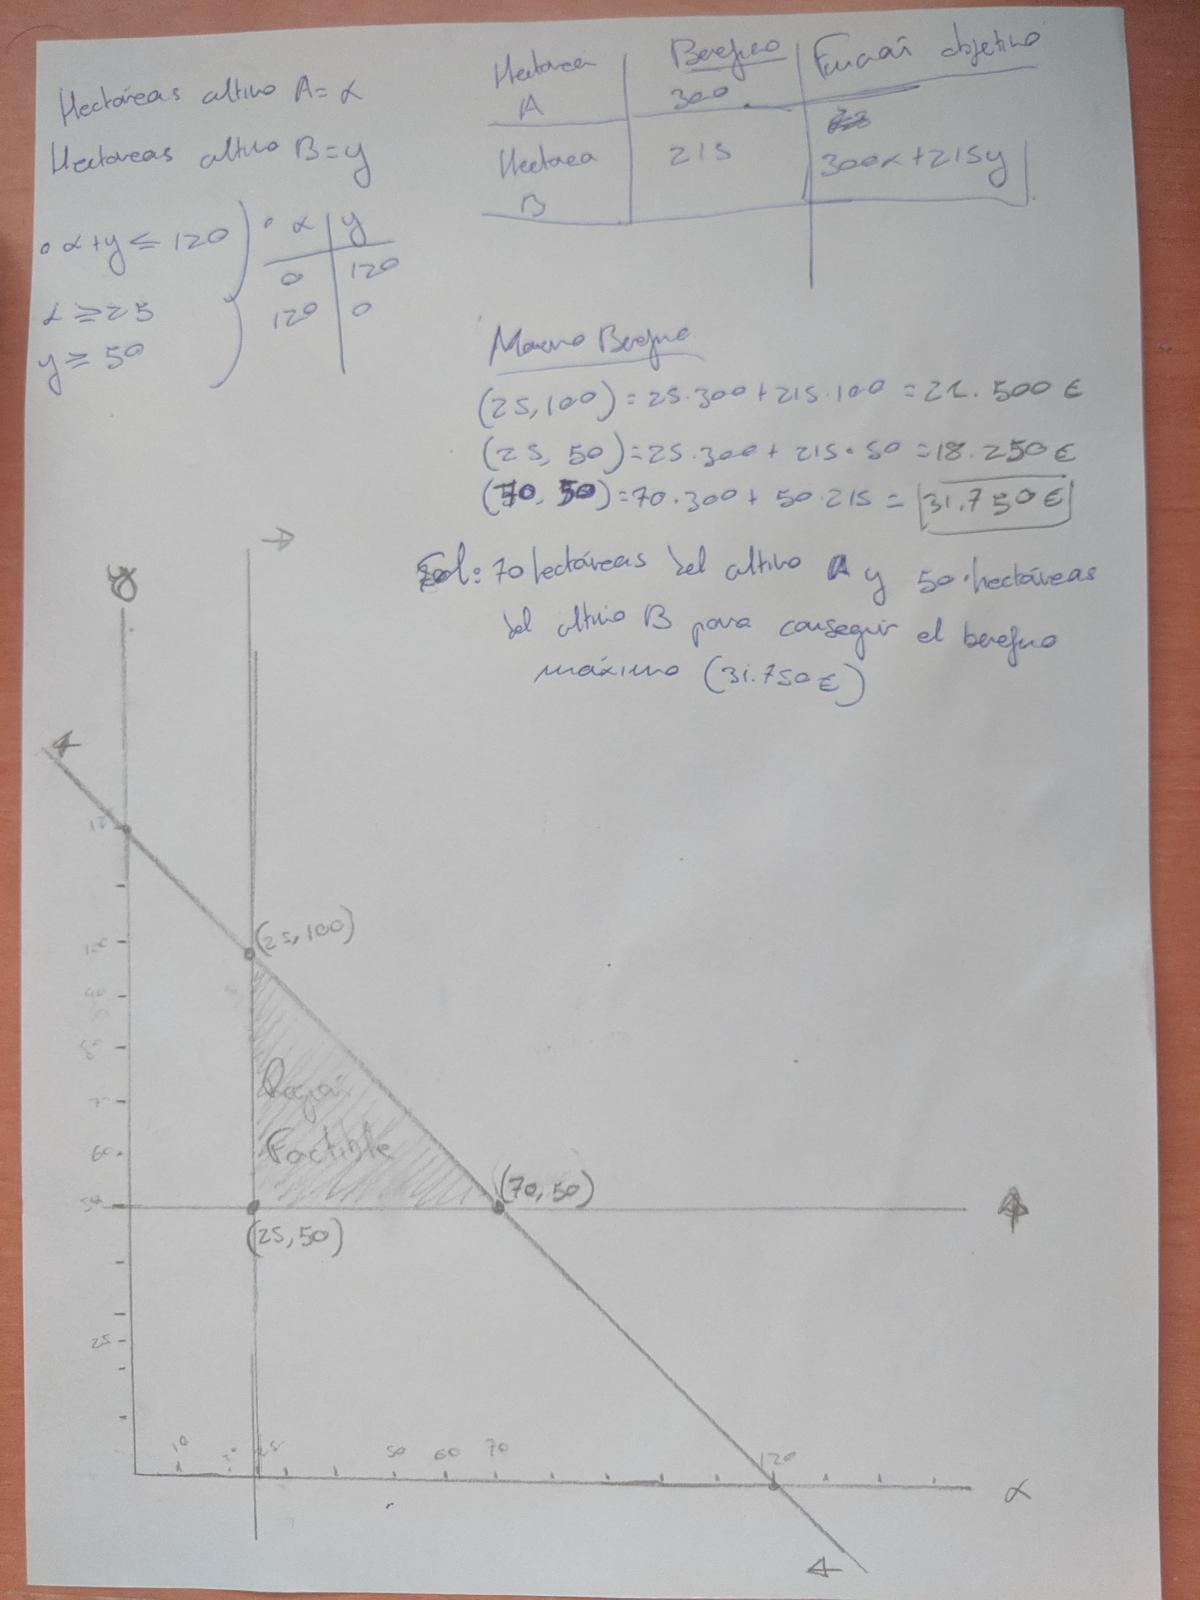 Hectáreas cultivo A = x
Hectáreas cultivo B = y
x+y ≤ 120
x ≥ 25
y ≥ 50
x | y
0 | 120
120 | 0
Hectárea A | Beneficio 300 | Función objetivo
Hectárea B | 215 | 300x + 215y
Maximo Beneficio
(25,100) = 25·300 + 215·100 = 21.500 €
(25, 50) = 25·300 + 215·50 = 18.250 €
(70, 50) = 70·300 + 50·215 = 31.750 €
Sol: 70 hectáreas del cultivo A y 50 hectáreas
del cultivo B para conseguir el beneficio
máximo (31.750 €)
y
120
(25,100)
100
90
80
70
Región
Factible
60
50
(70, 50)
(25, 50)
25
10 20 25 50 60 70 120
x